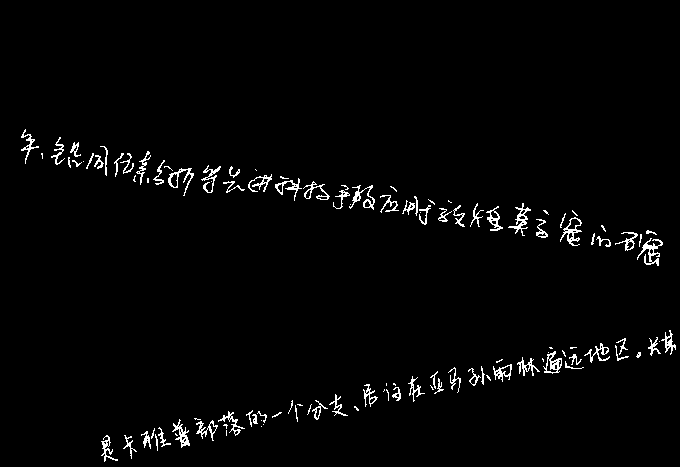 年、铅同位素分析等先进科技手段应用于敦煌莫高窟的石窟
是卡雅普部落的一个分支、居住在亚马孙雨林遍远地区。长期